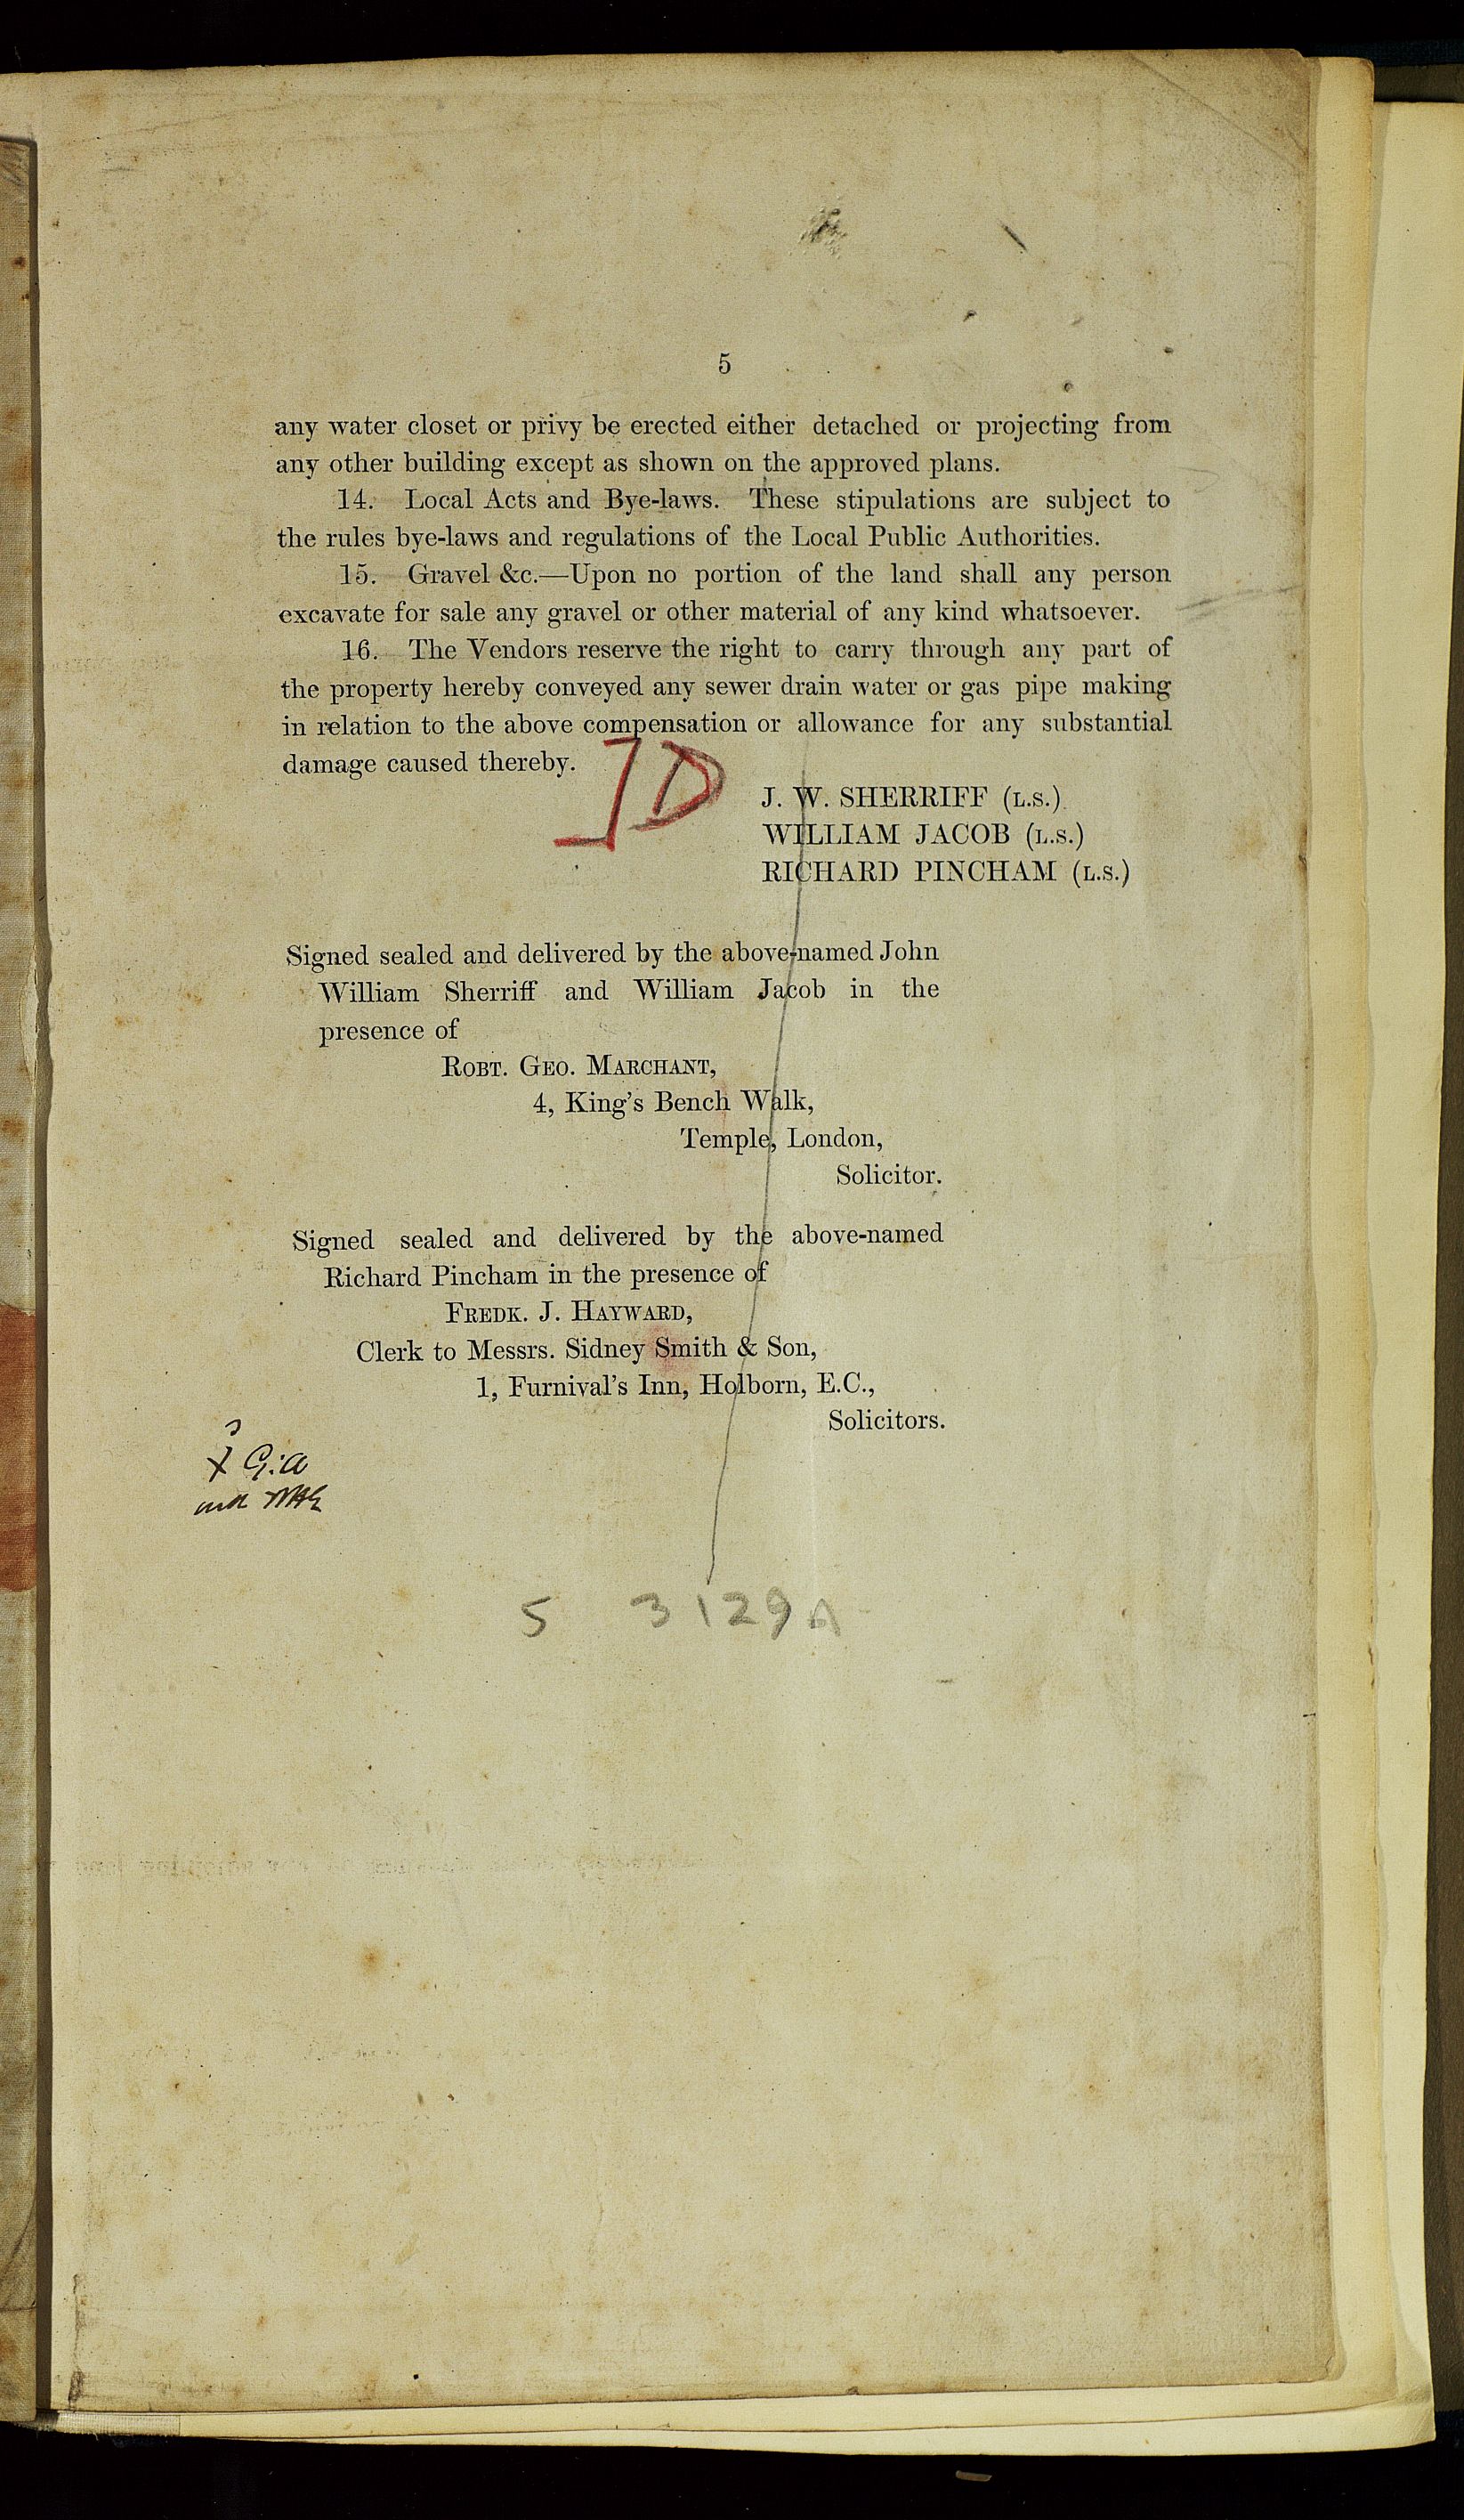 5
any water closet or privy be erected either detached or projecting from
any other building except as shown on the approved plans.
14. Local Acts and Bye-laws. These stipulations are subject to
the rules bye-laws and regulations of the Local Public Authorities.
15. Gravel &c.—Upon no portion of the land shall any person
excavate for sale any gravel or other material of any kind whatsoever.
16. The Vendors reserve the right to carry through any part of
the property hereby conveyed any sewer drain water or gas pipe making
in relation to the above compensation or allowance for any substantial
damage caused thereby.
J. W. SHERRIFF (L.S.)
WILLIAM JACOB (L.S.)
RICHARD PINCHAM (L.S.)
Signed sealed and delivered by the above-named John
William Sherriff and William Jacob in the
presence of
ROBT. GEO. MARCHANT,
4, King's Bench Walk,
Temple, London,
Solicitor.
Signed sealed and delivered by the above-named
Richard Pincham in the presence of
FREDK. J. HAYWARD,
Clerk to Messrs. Sidney Smith & Son,
1, Furnival's Inn, Holborn, E.C.,
Solicitors.
G.a
5 3129A